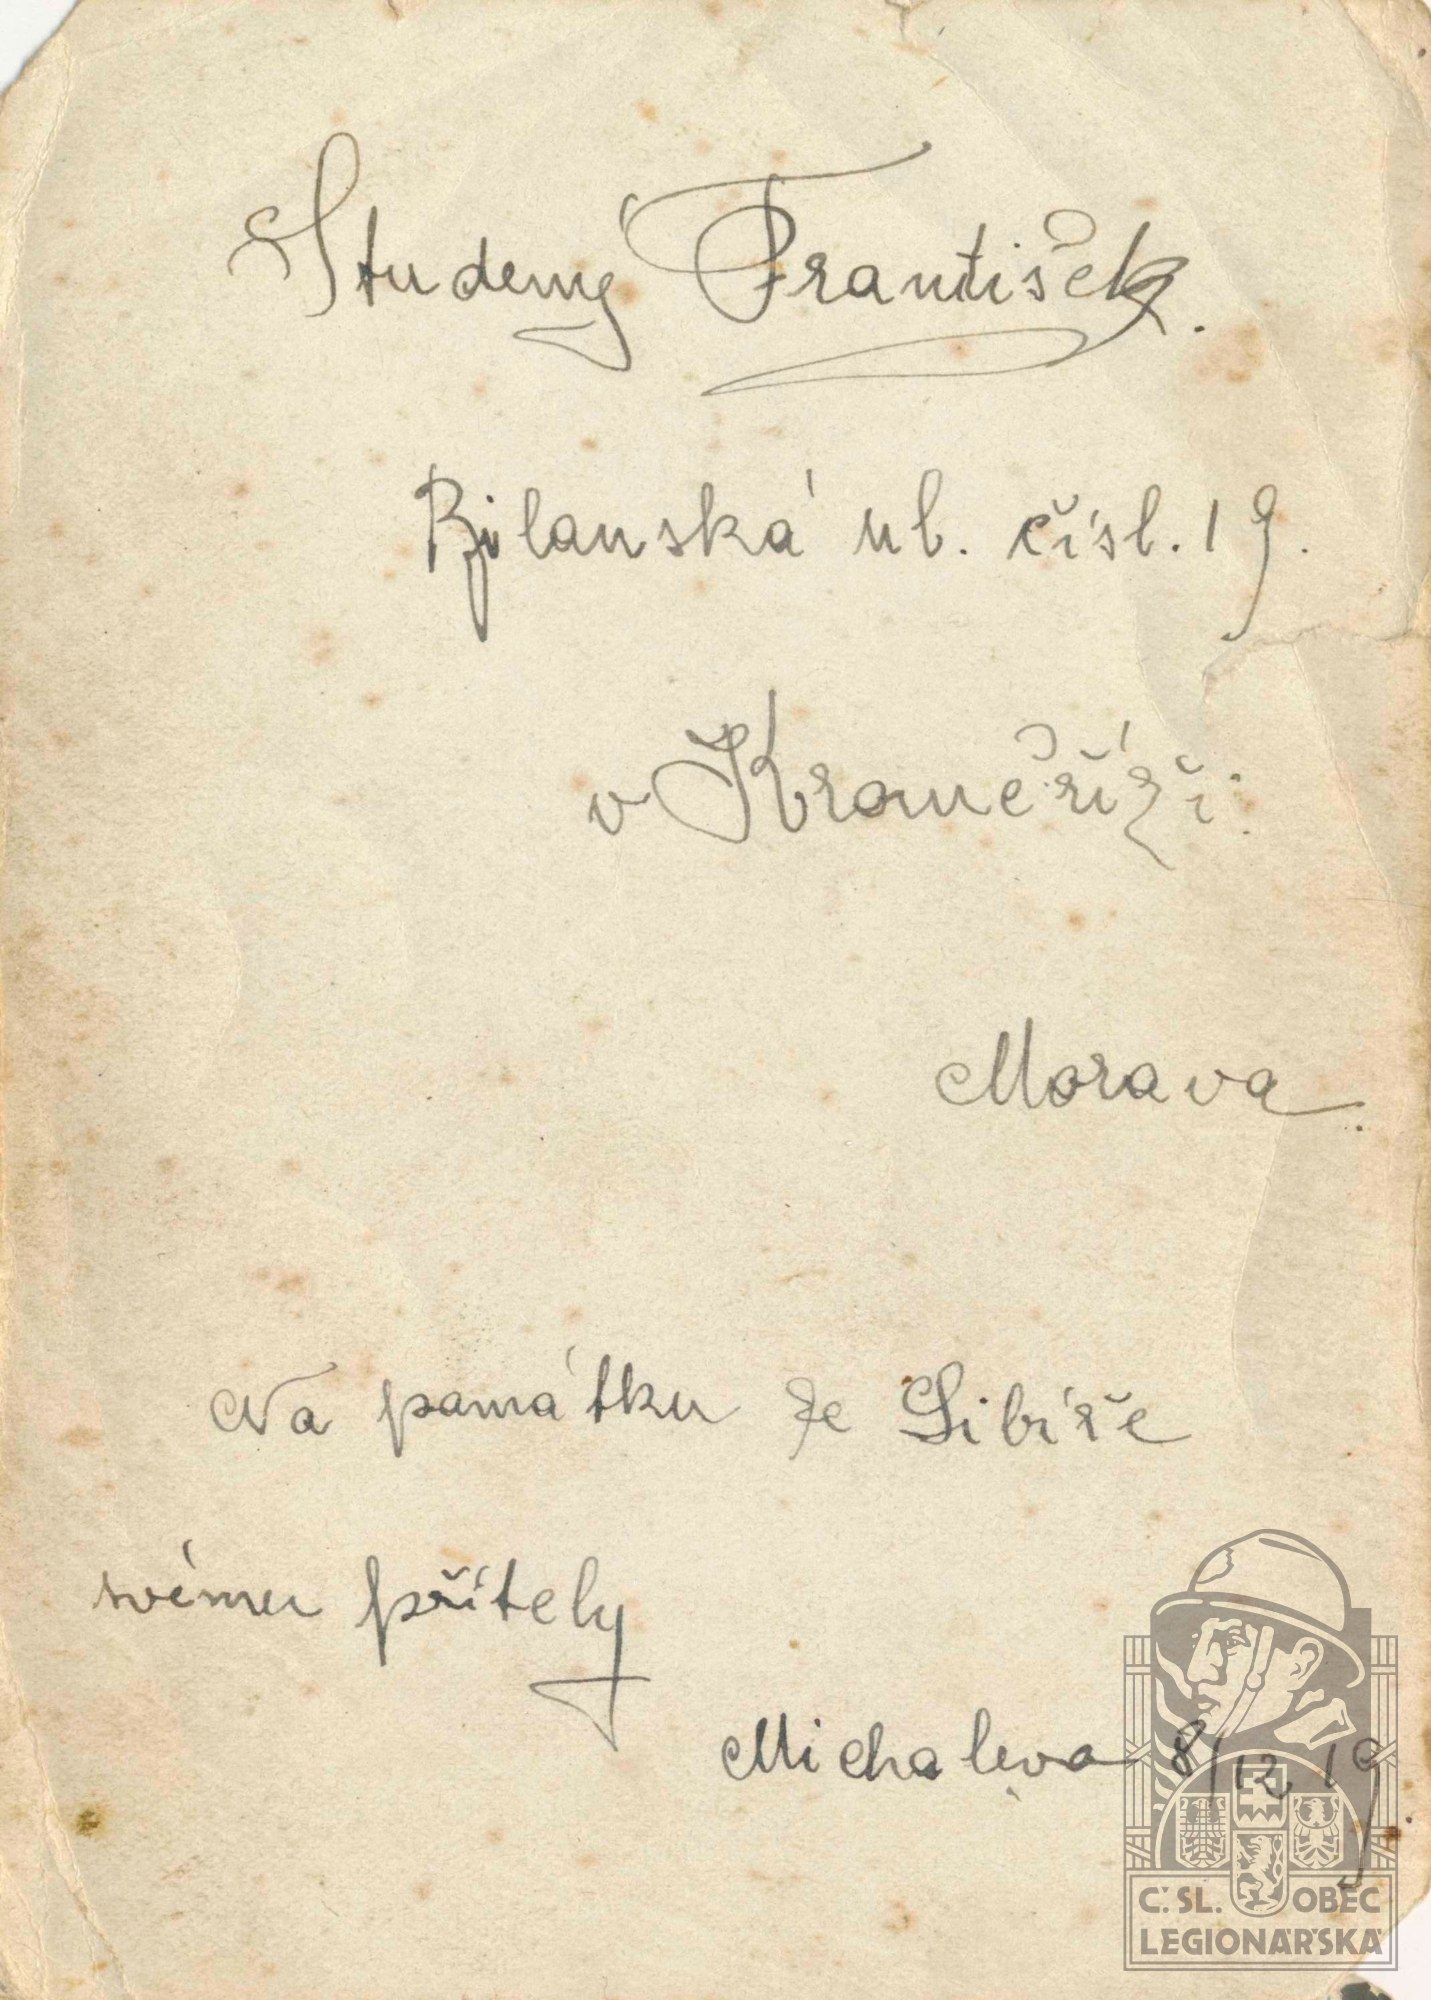 Studený František.
Bílanská ul. čísl. 19.
v Kroměříži.
Morava.
Na památku ze Sibiře
svému přítely
Michaleva 8/12 19.
Č. SL. OBEC
LEGIONÁŘSKÁ